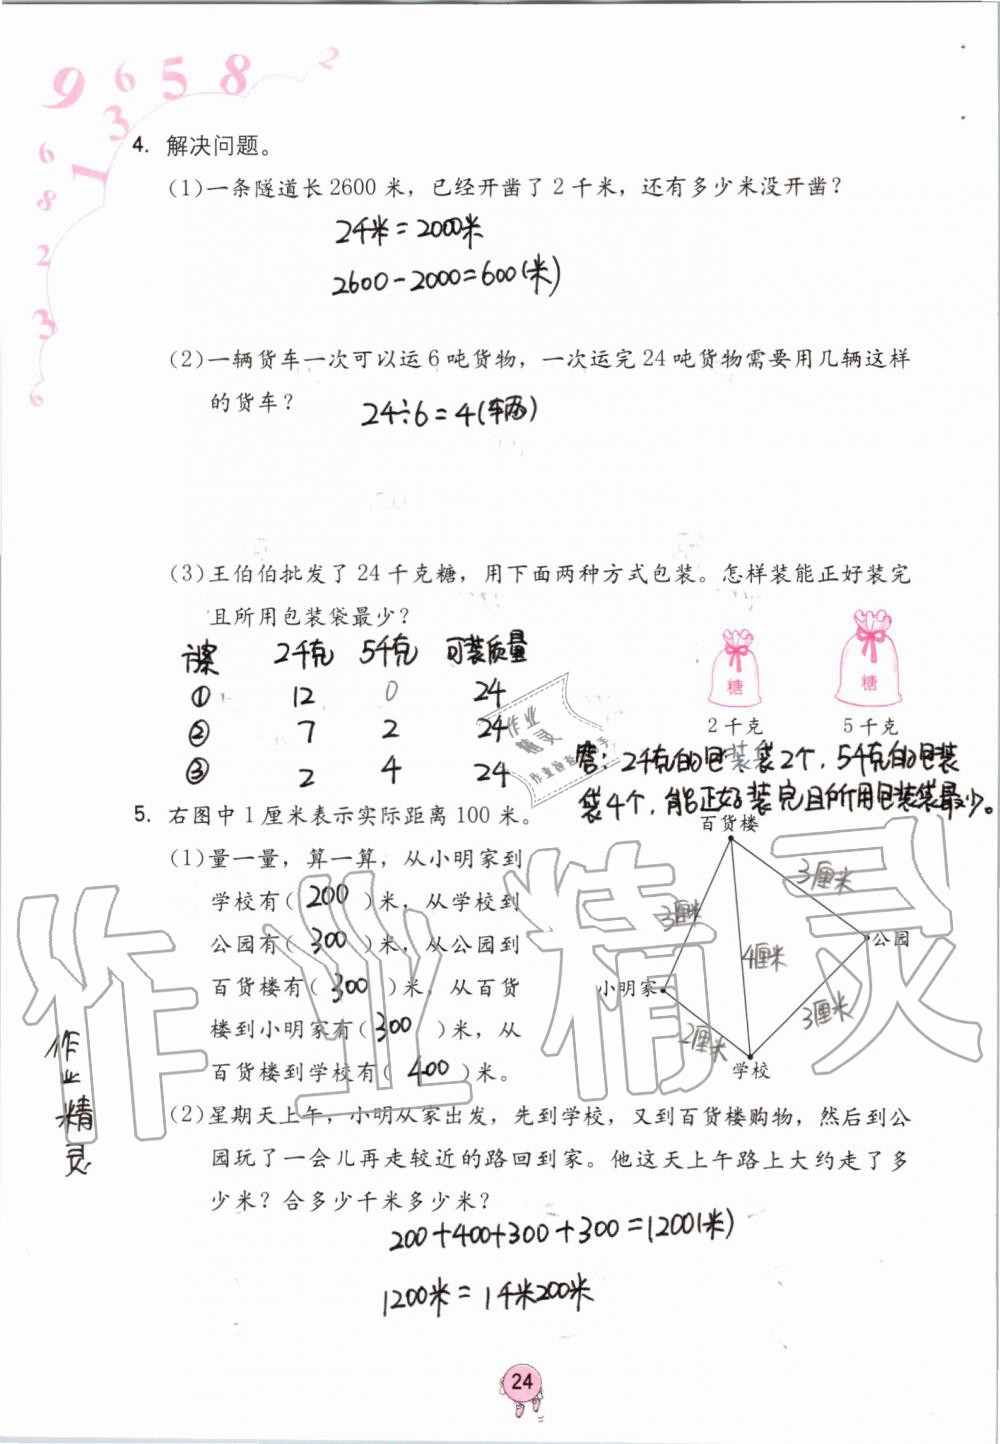 9 6 5 8 2
3
6 1
8
2
3
6
4. 解决问题。
(1)一条隧道长2600米，已经开凿了2千米，还有多少米没开凿？
2千米=2000米
2600-2000=600(米)
(2)一辆货车一次可以运6吨货物，一次运完24吨货物需要用几辆这样
的货车？
24÷6=4(辆)
(3)王伯伯批发了24千克糖，用下面两种方式包装。怎样装能正好装完
且所用包装袋最少？
方案 2千克 5千克 可装质量
① 12 0 24
② 7 2 24
③ 2 4 24
糖 糖
2千克 5千克
答：2千克的包装袋2个，5千克的包装
袋4个，能正好装完且所用包装袋最少。
5. 右图中1厘米表示实际距离100米。
(1)量一量，算一算，从小明家到
学校有(200)米，从学校到
公园有(300)米，从公园到
百货楼有(300)米，从百货
楼到小明家有(300)米，从
百货楼到学校有(400)米。
百货楼
3厘米
3厘米
公园
4厘米
小明家
3厘米
2厘米
学校
(2)星期天上午，小明从家出发，先到学校，又到百货楼购物，然后到公
园玩了一会儿再走较近的路回到家。他这天上午路上大约走了多
少米？合多少千米多少米？
200+400+300+300=1200(米)
1200米=1千米200米
作业精灵
作业精灵
作业
精灵
24